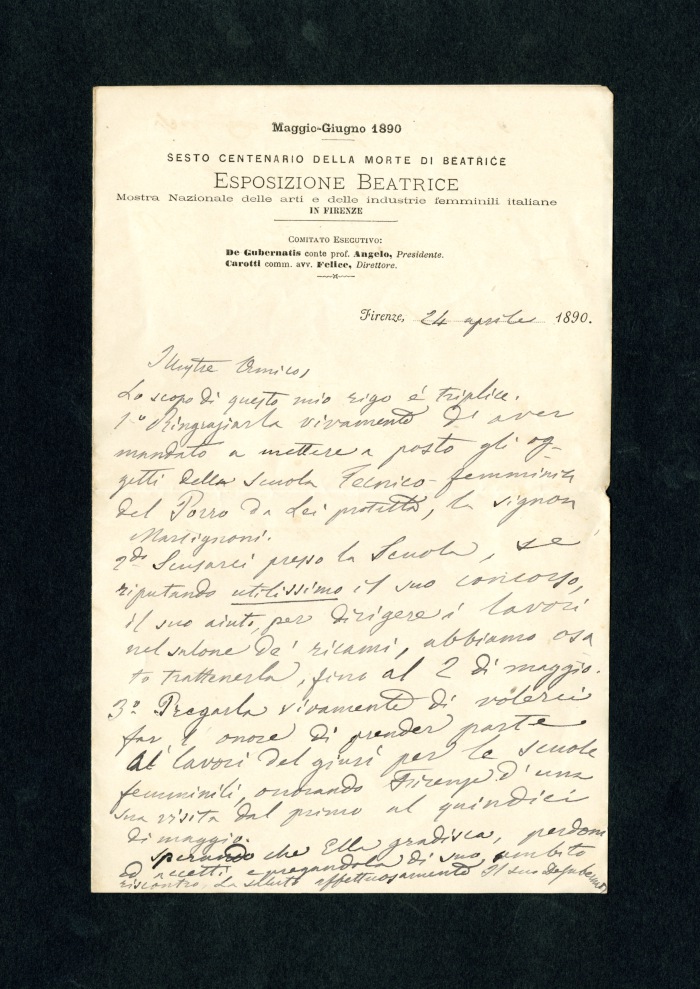 Maggio-Giugno 1890
SESTO CENTENARIO DELLA MORTE DI BEATRICE
ESPOSIZIONE BEATRICE
Mostra Nazionale delle arti e delle industrie femminili italiane
IN FIRENZE
COMITATO ESECUTIVO:
De Gubernatis conte prof. Angelo, Presidente.
Carotti comm. avv. Felice, Direttore.
Firenze, 24 aprile 1890.
Illustre Amico,
Lo scopo di questo mio rigo è triplice.
1° Ringraziarla vivamente di aver
mandato a mettere a posto gli og-
getti della Scuola Tecnico-femminile
del Porro da Lei protetta, la signora
Martignoni.
2° Scusarci presso la Scuola, se
riputando utilissimo il suo concorso,
il suo aiuto, per dirigere i lavori
nel salone de' ricami, abbiamo osa
to trattenerla, fino al 2 di maggio.
3° Pregarla vivamente di volerci
far l'onore di prender parte
ai lavori del giurì per le scuole
femminili, onorando Firenze d'una
sua visita dal primo al quindici
di maggio.
Sperando che Ella gradisca, perdoni
ed accetti, e pregandola di suo ambito
riscontro, La saluto affettuosamente Il suo Degubernatis